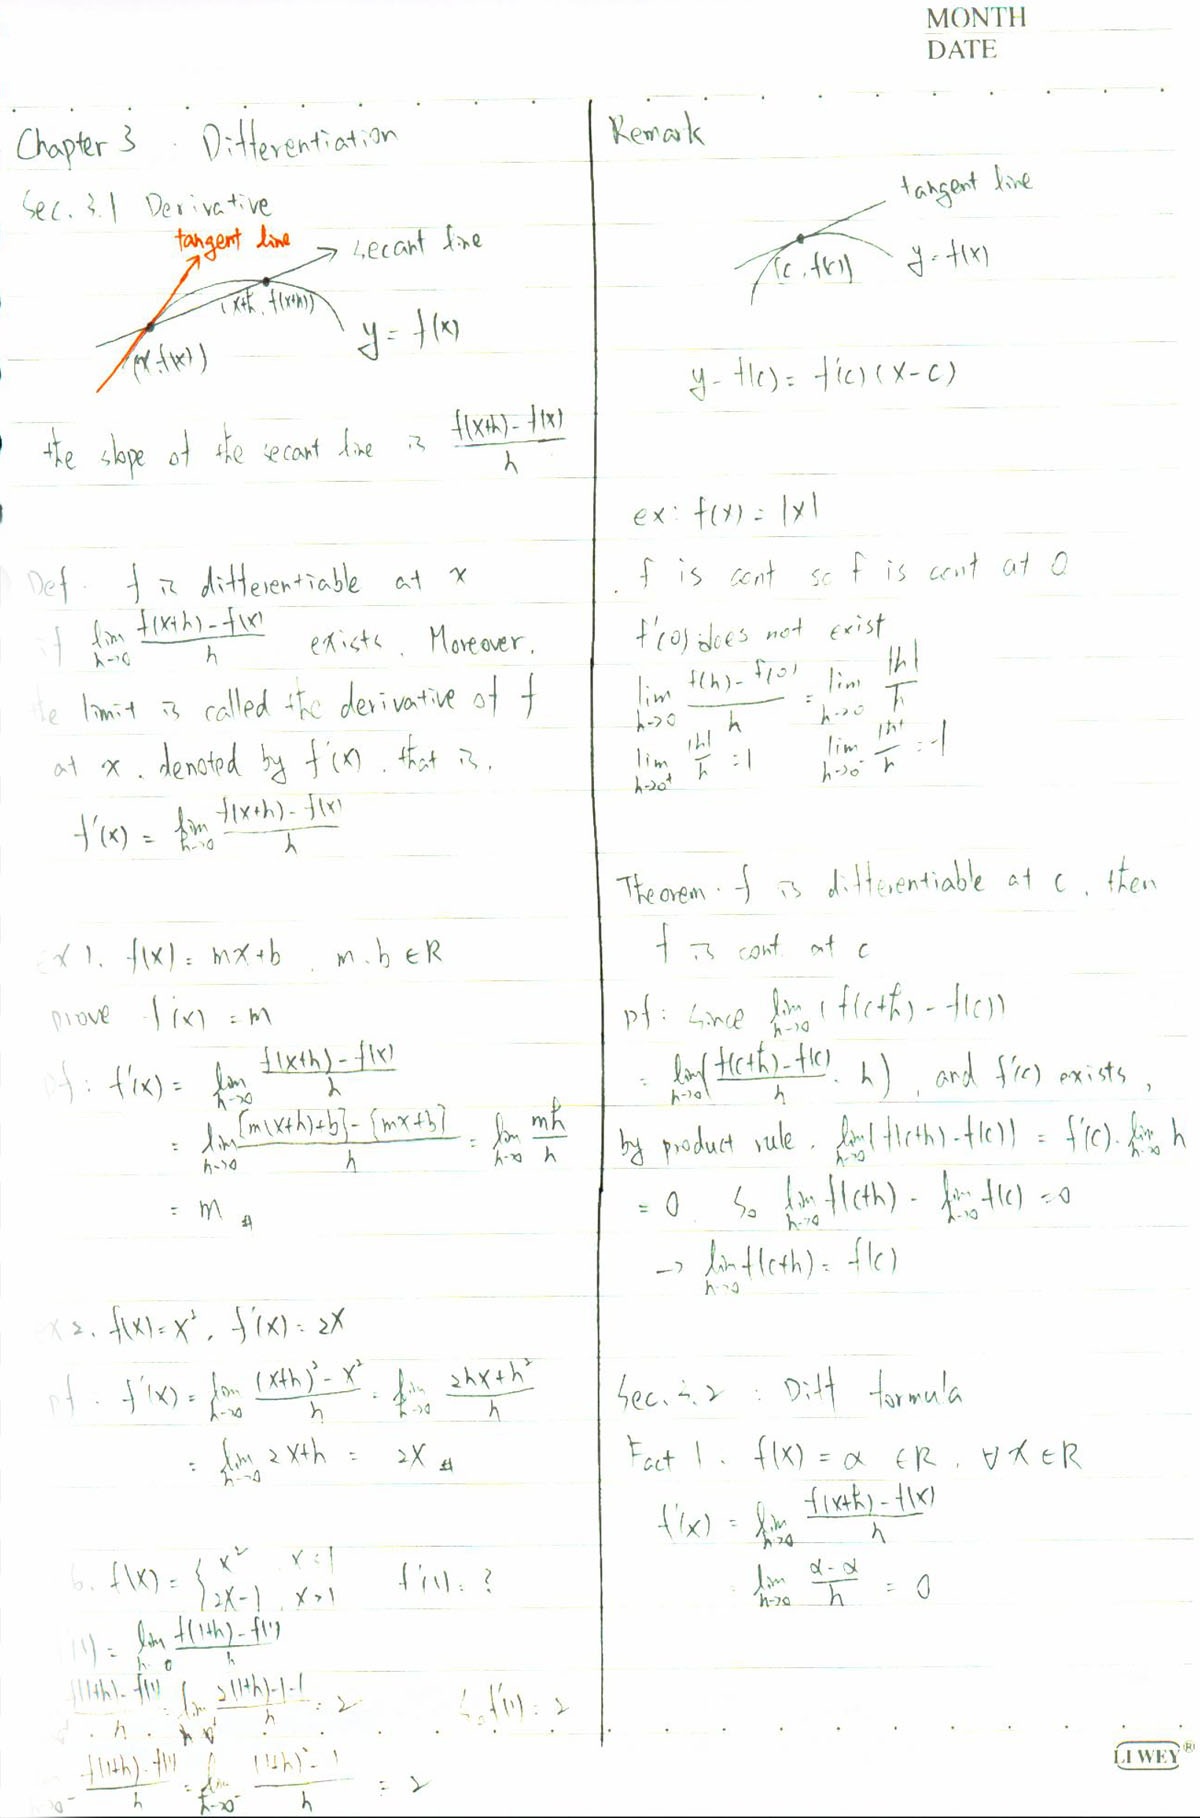 MONTH
DATE
Chapter 3 . Differentiation
Sec. 3.1 Derivative
tangent line
secant line
(x+h, f(x+h))
y = f(x)
(x, f(x))
the slope of the secant line is \frac{f(x+h) - f(x)}{h}
Def. f is differentiable at x
if \lim_{h→0} \frac{f(x+h) - f(x)}{h} exists. Moreover,
the limit is called the derivative of f
at x, denoted by f'(x), that is,
f'(x) = \lim_{h→0} \frac{f(x+h) - f(x)}{h}
ex 1. f(x) = mx+b , m, b ∈ R
prove f'(x) = m
pf : f'(x) = \lim_{h→0} \frac{f(x+h) - f(x)}{h}
= \lim_{h→0} \frac{[m(x+h)+b] - [mx+b]}{h} = \lim_{h→0} \frac{mh}{h}
= m #
ex 2. f(x) = x², f'(x) = 2x
pf . f'(x) = \lim_{h→0} \frac{(x+h)² - x²}{h} = \lim_{h→0} \frac{2hx + h²}{h}
= \lim_{h→0} 2x+h = 2x #
6. f(x) = { x² , x ≤ 1
2x-1 , x > 1 f'(1) = ?
(1) = \lim_{h→0} \frac{f(1+h) - f(1)}{h}
\frac{f(1+h) - f(1)}{h} = \lim_{h→0^+} \frac{2(1+h)-1-1}{h} = 2 So f'(1) = 2
\frac{f(1+h) - f(1)}{h} = \lim_{h→0^-} \frac{(1+h)² - 1}{h} = 2
Remark
tangent line
(c, f(c))
y = f(x)
y - f(c) = f'(c) (x - c)
ex : f(x) = |x|
f is cont so f is cont at 0
f'(0) does not exist
\lim_{h→0} \frac{f(h) - f(0)}{h} = \lim_{h→0} \frac{|h|}{h}
\lim_{h→0^+} \frac{|h|}{h} = 1 \lim_{h→0^-} \frac{|h|}{h} = -1
Theorem . f is differentiable at c, then
f is cont. at c
pf : Since \lim_{h→0} (f(c+h) - f(c))
= \lim_{h→0} (\frac{f(c+h) - f(c)}{h} · h) , and f'(c) exists,
by product rule, \lim_{h→0} (f(c+h) - f(c)) = f'(c) · \lim_{h→0} h
= 0 So \lim_{h→0} f(c+h) - \lim_{h→0} f(c) = 0
→ \lim_{h→0} f(c+h) = f(c)
Sec. 3.2 : Diff formula
Fact 1. f(x) = α ∈ R, ∀ x ∈ R
f'(x) = \lim_{h→0} \frac{f(x+h) - f(x)}{h}
= \lim_{h→0} \frac{α - α}{h} = 0
LI WEY ®